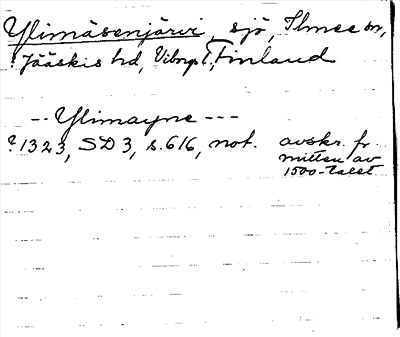 Ylimäsenjärvi, sjö, Ilmee sn,
Jääskis hd, Viborgs l, Finland
-- Ylimayne ---
? 1323, SD 3, s. 616, not. avskr. fr.
mitten av
1500-talet